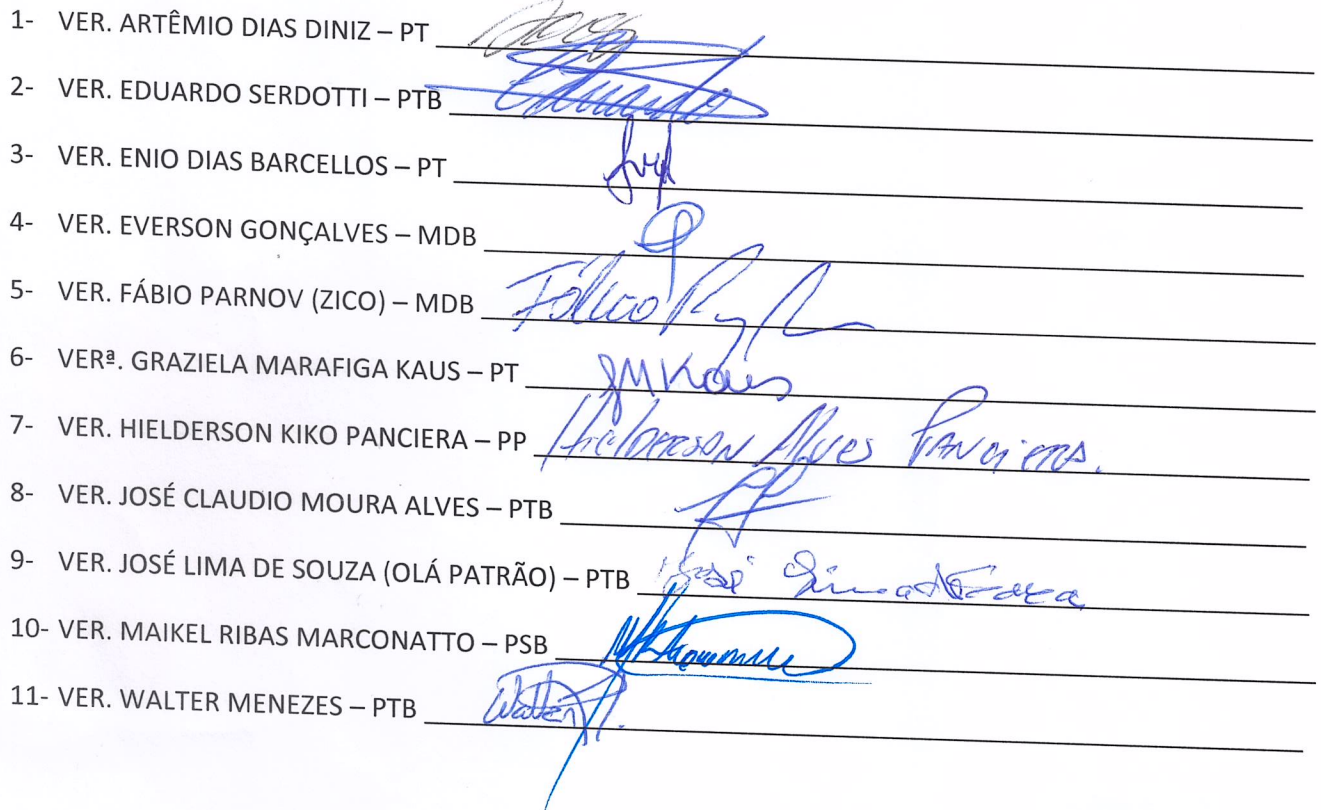 1- VER. ARTÊMIO DIAS DINIZ – PT
2- VER. EDUARDO SERDOTTI – PTB Eduardo
3- VER. ENIO DIAS BARCELLOS – PT
4- VER. EVERSON GONÇALVES – MDB
5- VER. FÁBIO PARNOV (ZICO) – MDB Fábio
6- VERª. GRAZIELA MARAFIGA KAUS – PT GMKaus
7- VER. HIELDERSON KIKO PANCIERA – PP Hielderson Alves Panciera.
8- VER. JOSÉ CLAUDIO MOURA ALVES – PTB
9- VER. JOSÉ LIMA DE SOUZA (OLÁ PATRÃO) – PTB José Lima de Souza
10- VER. MAIKEL RIBAS MARCONATTO – PSB
11- VER. WALTER MENEZES – PTB Walter M.